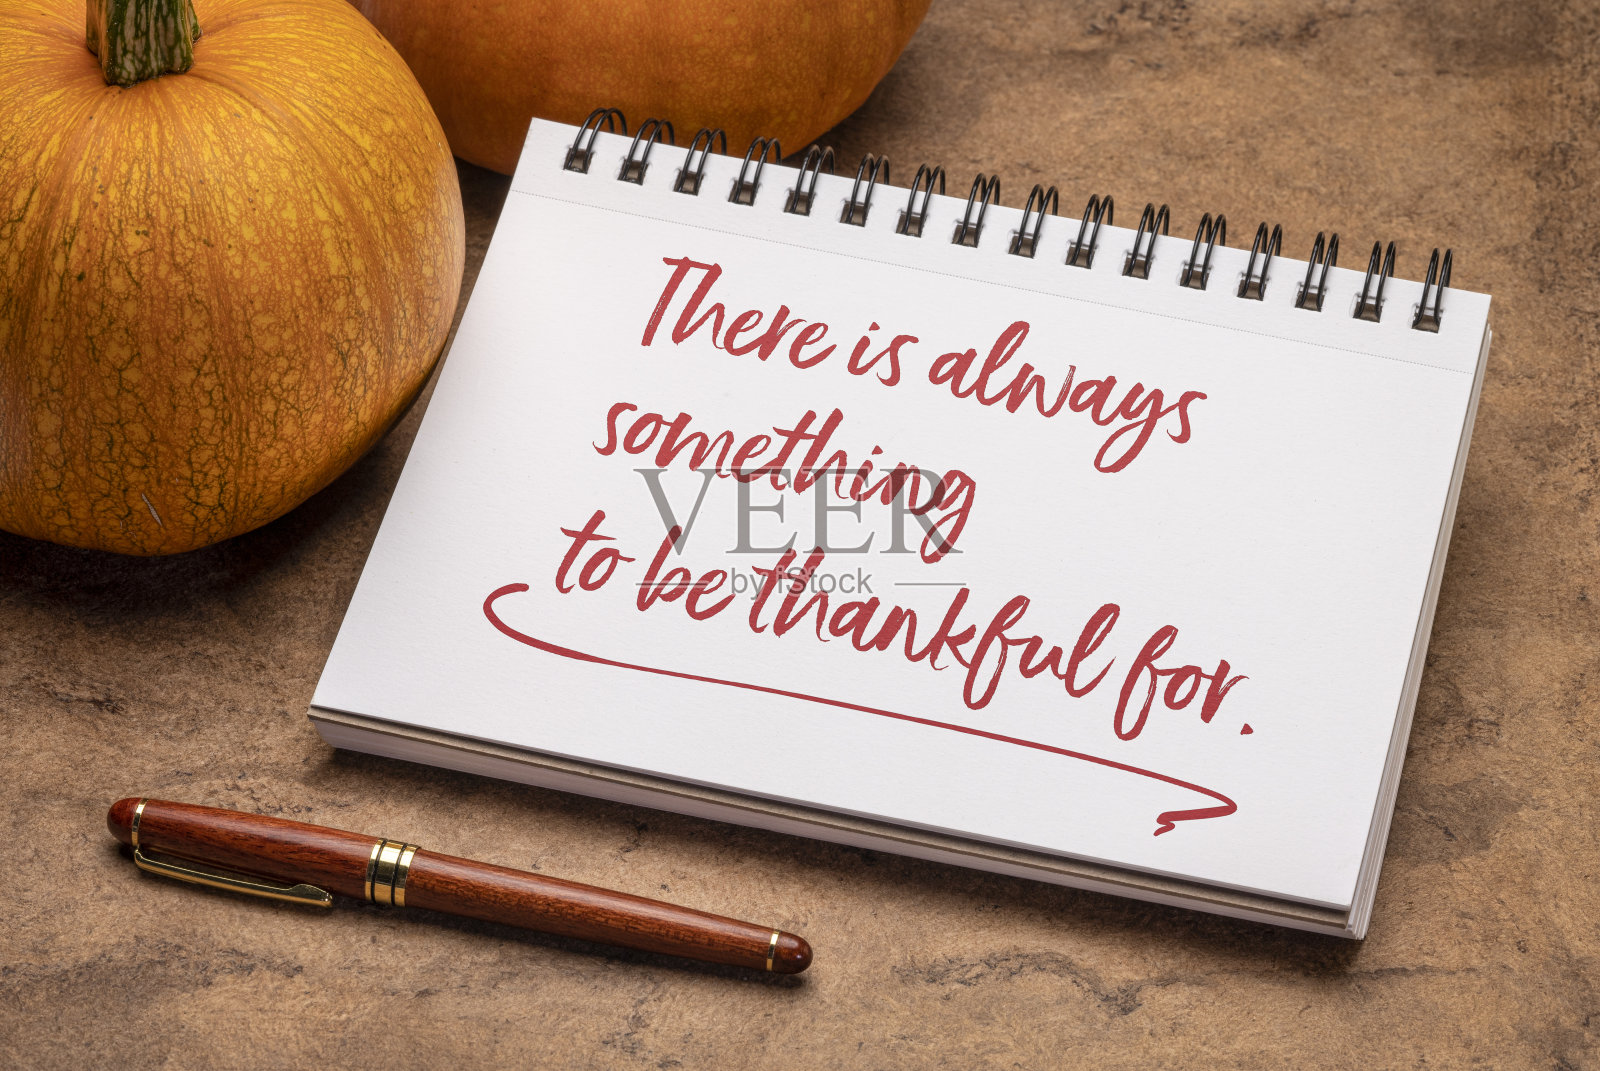 There is always
something
to be thankful for.
VEER
by iStock